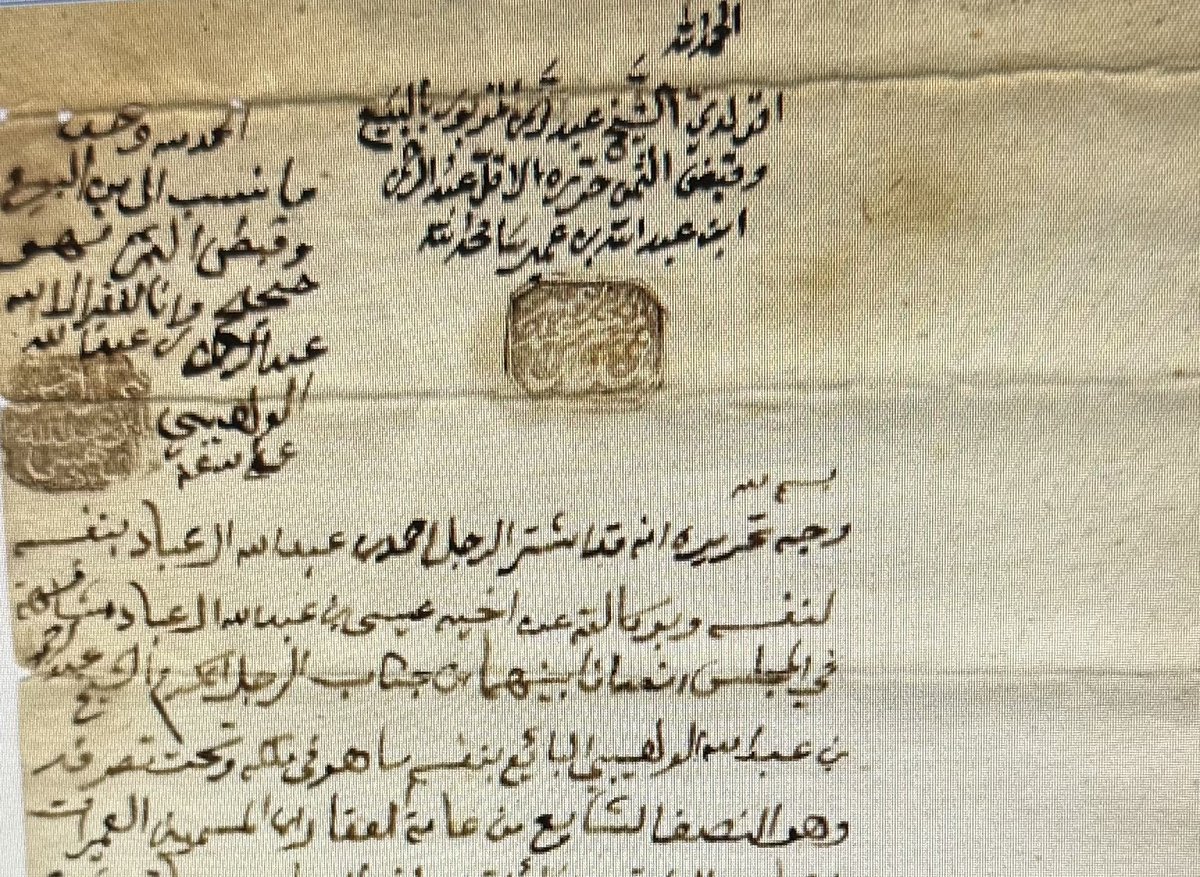 الحمد لله
اقر لدي الشيخ عبد الرحمن المزبور بالبيع
وقبض الثمن حرره الاقل عبد الرحمن
ابن عبد الله بن
الحمد لله وحده
ما نسب الى من البيع
وقبض الثمن فهو
صحيح وانا الفقير الا الله
عبد الرحمن بن عبد الله
الوهيبي
بسم الله
وجه تحريره انه قد اشتر الرجل احمد بن عبد الله ال عباد بنفسه
لنفسه وبوكالته عن اخيه عيسى بن عبد الله ال عباد
في المجلس بينهما من جناب الرجل المكرم الشيخ عبد الرحمن
بن عبد الله الوهيبي البائع بنفسه ما هو في ملكه وتحت تصرفه
وهو النصف الشايع من عامة العقارين المسمين